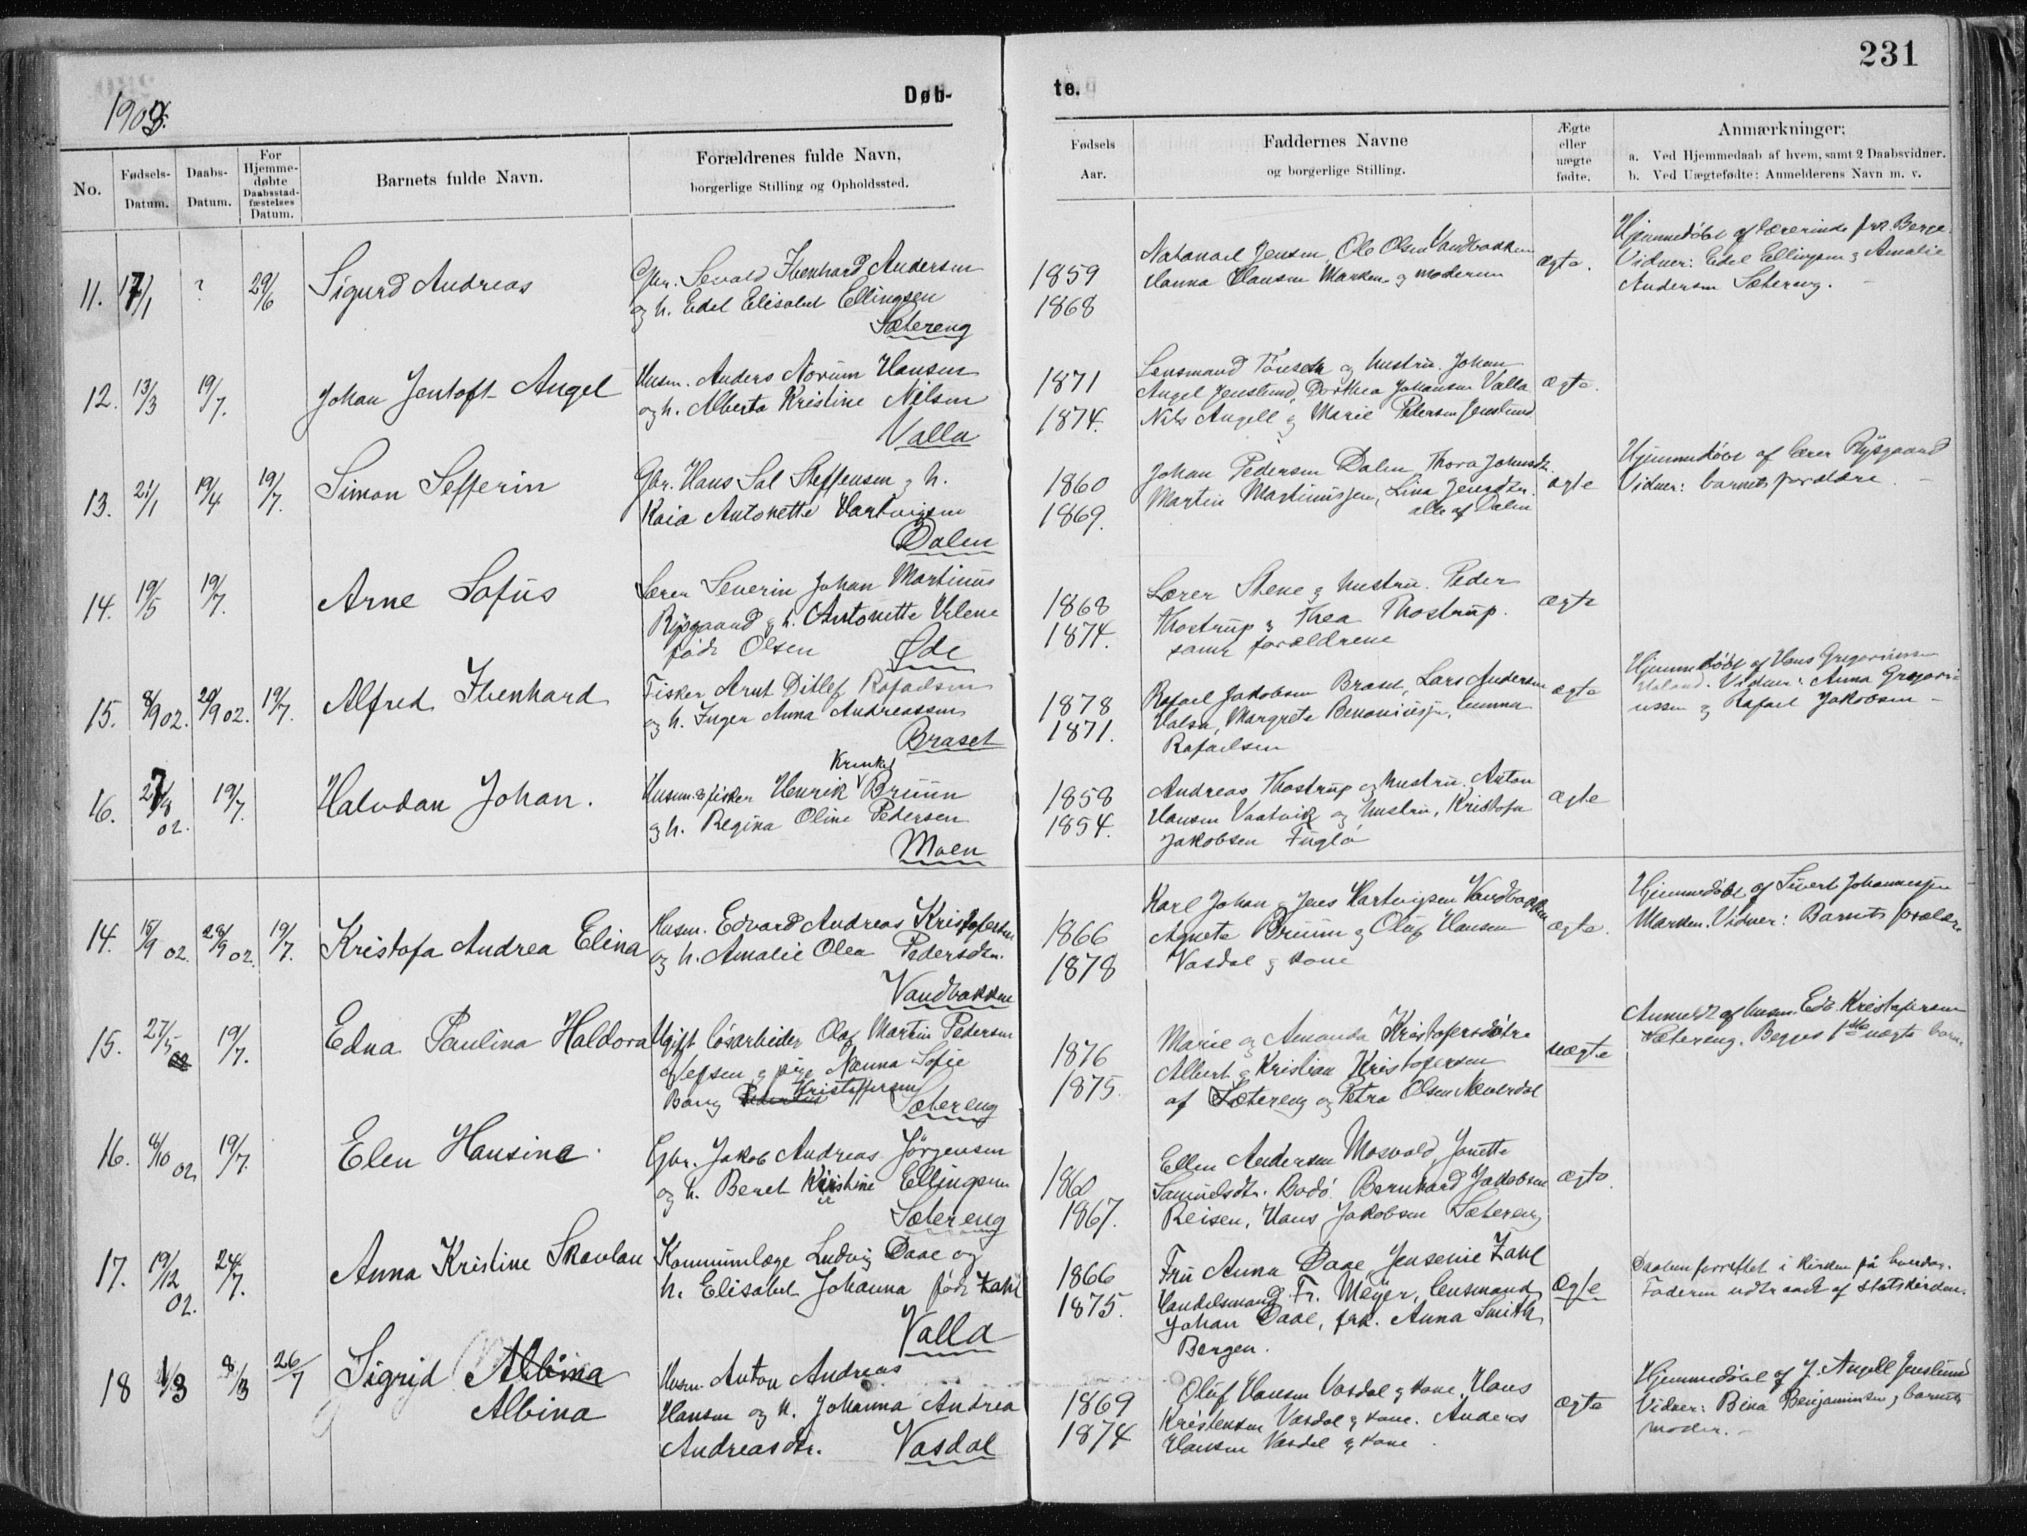 231
1903.
Døb-
te.
No.
Fødsels-
Datum.
Daabs-
Datum.
For
Hjemme-
døbte
Daabsstad-
fæstelses
Datum.
Barnets fulde Navn.
Forældrenes fulde Navn,
borgerlige Stilling og Opholdssted.
Fødsels
Aar.
Faddernes Navne
og borgerlige Stilling.
Ægte
eller
uægte
fødte.
Anmærkninger:
a. Ved Hjemmedaab af hvem, samt 2 Daabsvidner.
b. Ved Uægtefødte: Anmelderens Navn m. v.
11. 17/1 ? 29/6 Sigurd Andreas
Gbr. Sevald Ibenhard Andersen
og h. Edel Elisabet Ellingsen
Sætereng
1859
1868
Natanael Jensen, Ole Olsen Vandbakken
Hanna Hansen Marken og moderen
ægte.
Hjemmedøbt af lærerinde frk. Berge.
Vidner: Edel Ellingsen og Amalie
Andersen Sætereng.
12. 13/3 19/7. Johan Jentoft Angel
Husm. Anders Norum Hansen
og h. Alberta Kristine Nilsen
Valla
1871
1874.
Lensmand og hustru. Johan
Angel Jenslund, Dorthea Johansen Valla
Nils Angell og Marie Pedersen Jenslund
ægte.
13. 21/1 19/4 19/7. Simon Sefferin
Gbr. Hans Sal Steffensen og h.
Kaia Antonette Hartvigsen
Dalen
1860
1869.
Johan Pedersen Dalen, Thora Johnsdtr.
Martin Martinussen, Lina Jensdtr.
alle af Dalen
ægte
Hjemmedøbt af lærer Rysgaard
Vidner: barnets forældre.
14. 19/5 19/7. Arne Sofus
Lærer Severin Johan Martinus
Rysgaard og h. Antonette Helene
født Olsen Øde
1868
1874.
Lærer Stene og hustru. Peder
Thostrup og Thea Thostrup.
samt forældrene
ægte
15. 8/9 02. 20/9 02. 19/7. Alfred Ibenhard
Fisker Arnt Ditlef Rafaelsen
og h. Inger Anna Andreassen
Braset
1878
1871.
Rafael Jakobsen Braset, Lars Andersen
Valsa, Margrete Benoniussen,
Rafaelsen
ægte
Hjemmedøbt af Hans Gregoriussen
Vidner: Anna Gregori-
ussen og Rafael Jakobsen
16. 27/9 02. 19/7. Halvdan Johan.
Krinkel
Husm. og fisker Henrik Bruun
og h. Regina Oline Pedersen
Moen
1858
1854.
Andreas Thostrup og hustru, Anton
Hansen Vaatvik og hustru, Kristofa
Jakobsen Fuglø
ægte
14. 15/9 02. 28/9 02. 19/7. Kristofa Andrea Elina
Husm. Edvard Andreas Kristofersen
og h. Amalie Olea Pedersdtr.
Vandbakken
1866
1878
Karl Johan og Jens Hartvigsen Vandbakken
Agnete Bruun og Oluf Hansen
Vasdal og kone
ægte.
Hjemmedøbt af Sivert Johannessen
Marken. Vidner: Barnets forældre
15. 27/5 19/7. Edna Paulina Haldora
Ugift løsarbeider Olaf Martin Pedersen
Vefsen og pige Nanna Sofie
Bang Kristoffersen Sætereng
1876
1875.
Marie og Amanda Kristofersdøtre
Albert og Kristian Kristofersen
af Sætereng og Petra Olsen Neverdal
uægte
Anmeldt af husm. Edv. Kristofersen
Sætereng. Begges 1ste uægte barn.
16. 8/10 02. 19/7. Elen Hansine
Gbr. Jakob Andreas Jørgensen
og h. Beret Kristine Ellingsen
Sætereng
1860
1867.
Ellen Andersen Mosvold, Jonette
Samuelsdtr. Bodø. Bernhard Jakobsen
Reisen, Hans Jakobsen Sætereng
ægte
17. 19/12 02. 24/7. Anna Kristine Skavlan
Kommunelæge Ludvig Daae og
h. Elisabet Johanna født Zahl
Valla
1866
1875.
Fru Anna Daae Jensenie Zahl
Handelsmand Fr. Meyer, lensmand
Johan Daae, frk. Anna Smith
Bergen.
Ægte
Daaben forrettet i kirken på hverdag.
Faderen udtraadt af statskirken.
18 1/3 8/3 26/7 Sigrid Albina
Albina
Husm. Anton Andreas
Hansen og h. Johanna Andrea
Andreasdtr. Vasdal
1869
1874
Oluf Hansen Vasdal og kone, Hans
Kristensen Vasdal og kone. Anders
Hansen Vasdal og kone.
ægte
Hjemmedøbt af J. Angell Jenslund
Vidner: Bina Benjaminsen og barnets
moder.